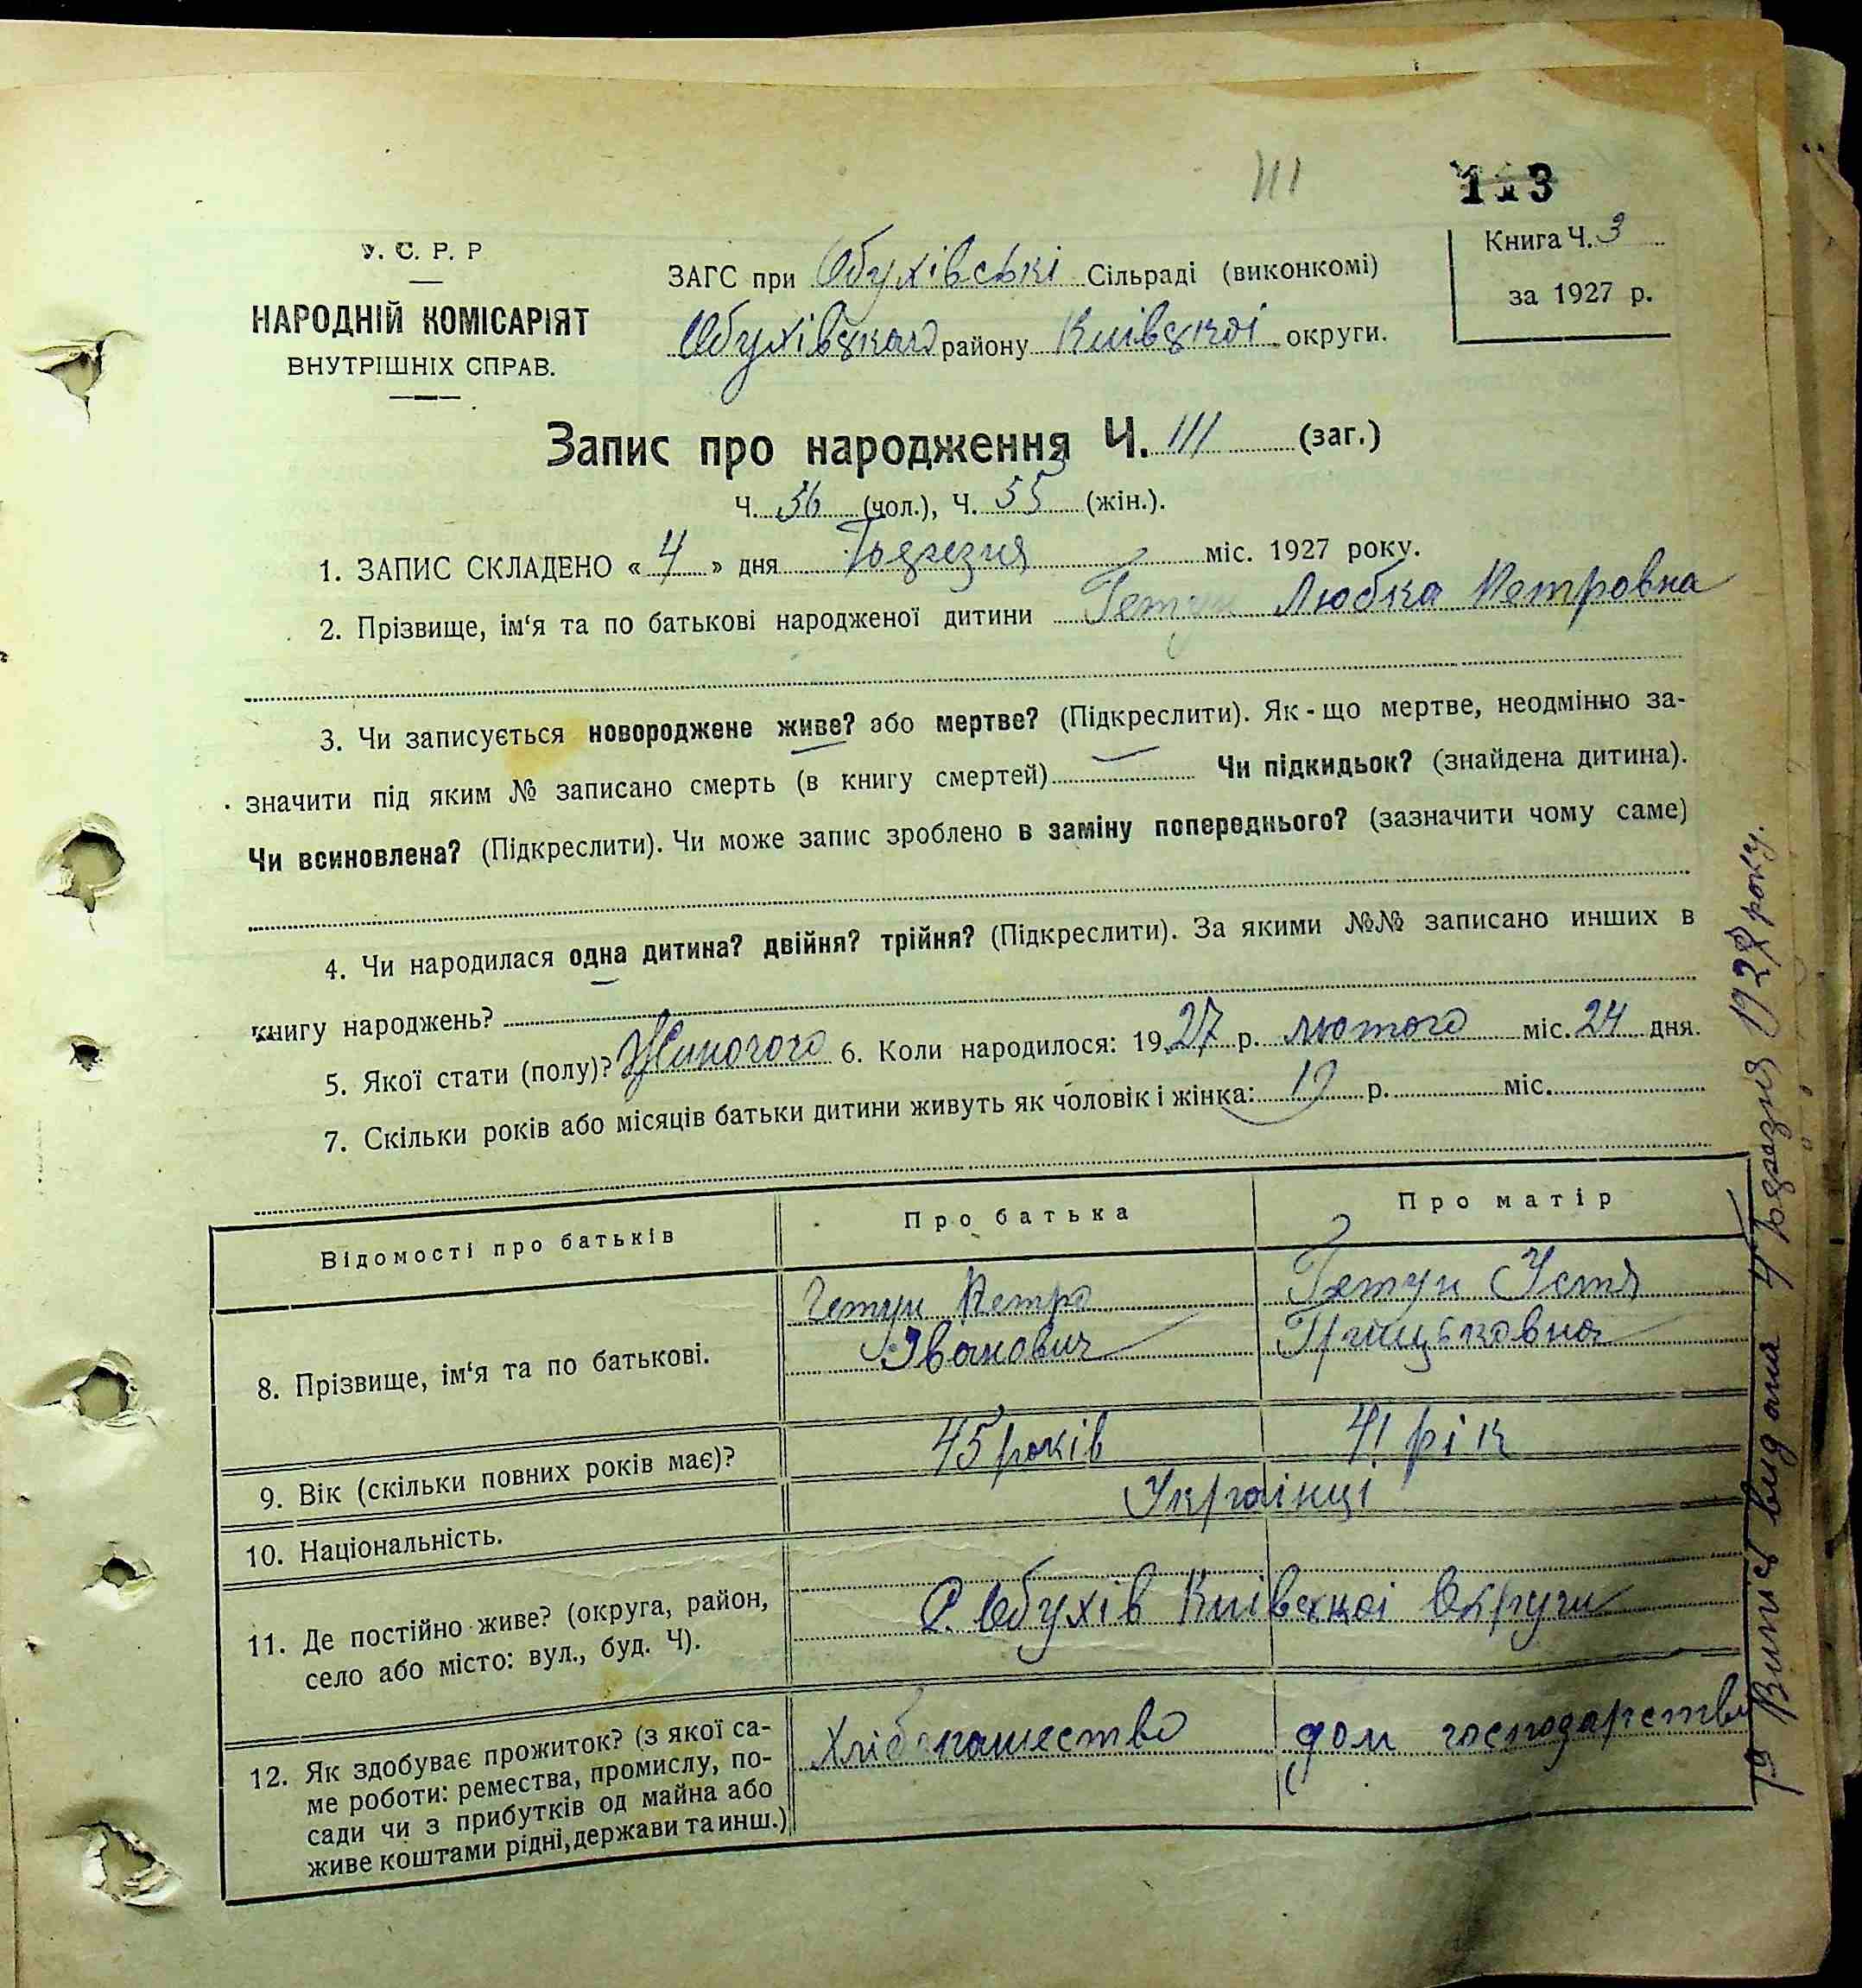 111
113
У. С. Р. Р
НАРОДНІЙ КОМІСАРІЯТ
ВНУТРІШНІХ СПРАВ.
ЗАГС при Обухівські Сільраді (виконкомі)
Обухівскаго району Київскої округи.
Книга Ч. 3
за 1927 р.
Запис про народження Ч. 111 (заг.)
Ч. 56 (чол.), Ч. 55 (жін.).
1. ЗАПИС СКЛАДЕНО « 4 » дня березня міс. 1927 року.
2. Прізвище, ім‘я та по батькові народженої дитини Гетун Любка Петровна
3. Чи записується новороджене живе? або мертве? (Підкреслити). Як - що мертве, неодмінно за-
значити під яким № записано смерть (в книгу смертей) Чи підкидьок? (знайдена дитина).
Чи всиновлена? (Підкреслити). Чи може запис зроблено в заміну попереднього? (зазначити чому саме)
4. Чи народилася одна дитина? двійня? трійня? (Підкреслити). За якими №№ записано инших в
книгу народжень?
5. Якої стати (полу)? Жиночого 6. Коли народилося: 1927 р. лютого міс. 24 дня.
7. Скільки років або місяців батьки дитини живуть як чоловік і жінка: 19 р. міс.
Відомості про батьків Про батька Про матір
8. Прізвище, ім‘я та по батькові. Гетун Петро Гетун Устя
Іванович Грицьковна
9. Вік (скільки повних років має)? 45 років 41 рік
10. Національність. Українці
11. Де постійно живе? (округа, район, С. Обухів Київскої Округи
село або місто: вул., буд. Ч).
12. Як здобуває прожиток? (з якої са- Хлібопашество дом господарство
ме роботи: ремества, промислу, по-
сади чи з прибутків од майна або
живе коштами рідні, держави та инш.)
Випис видана 4 березня 1927 року.